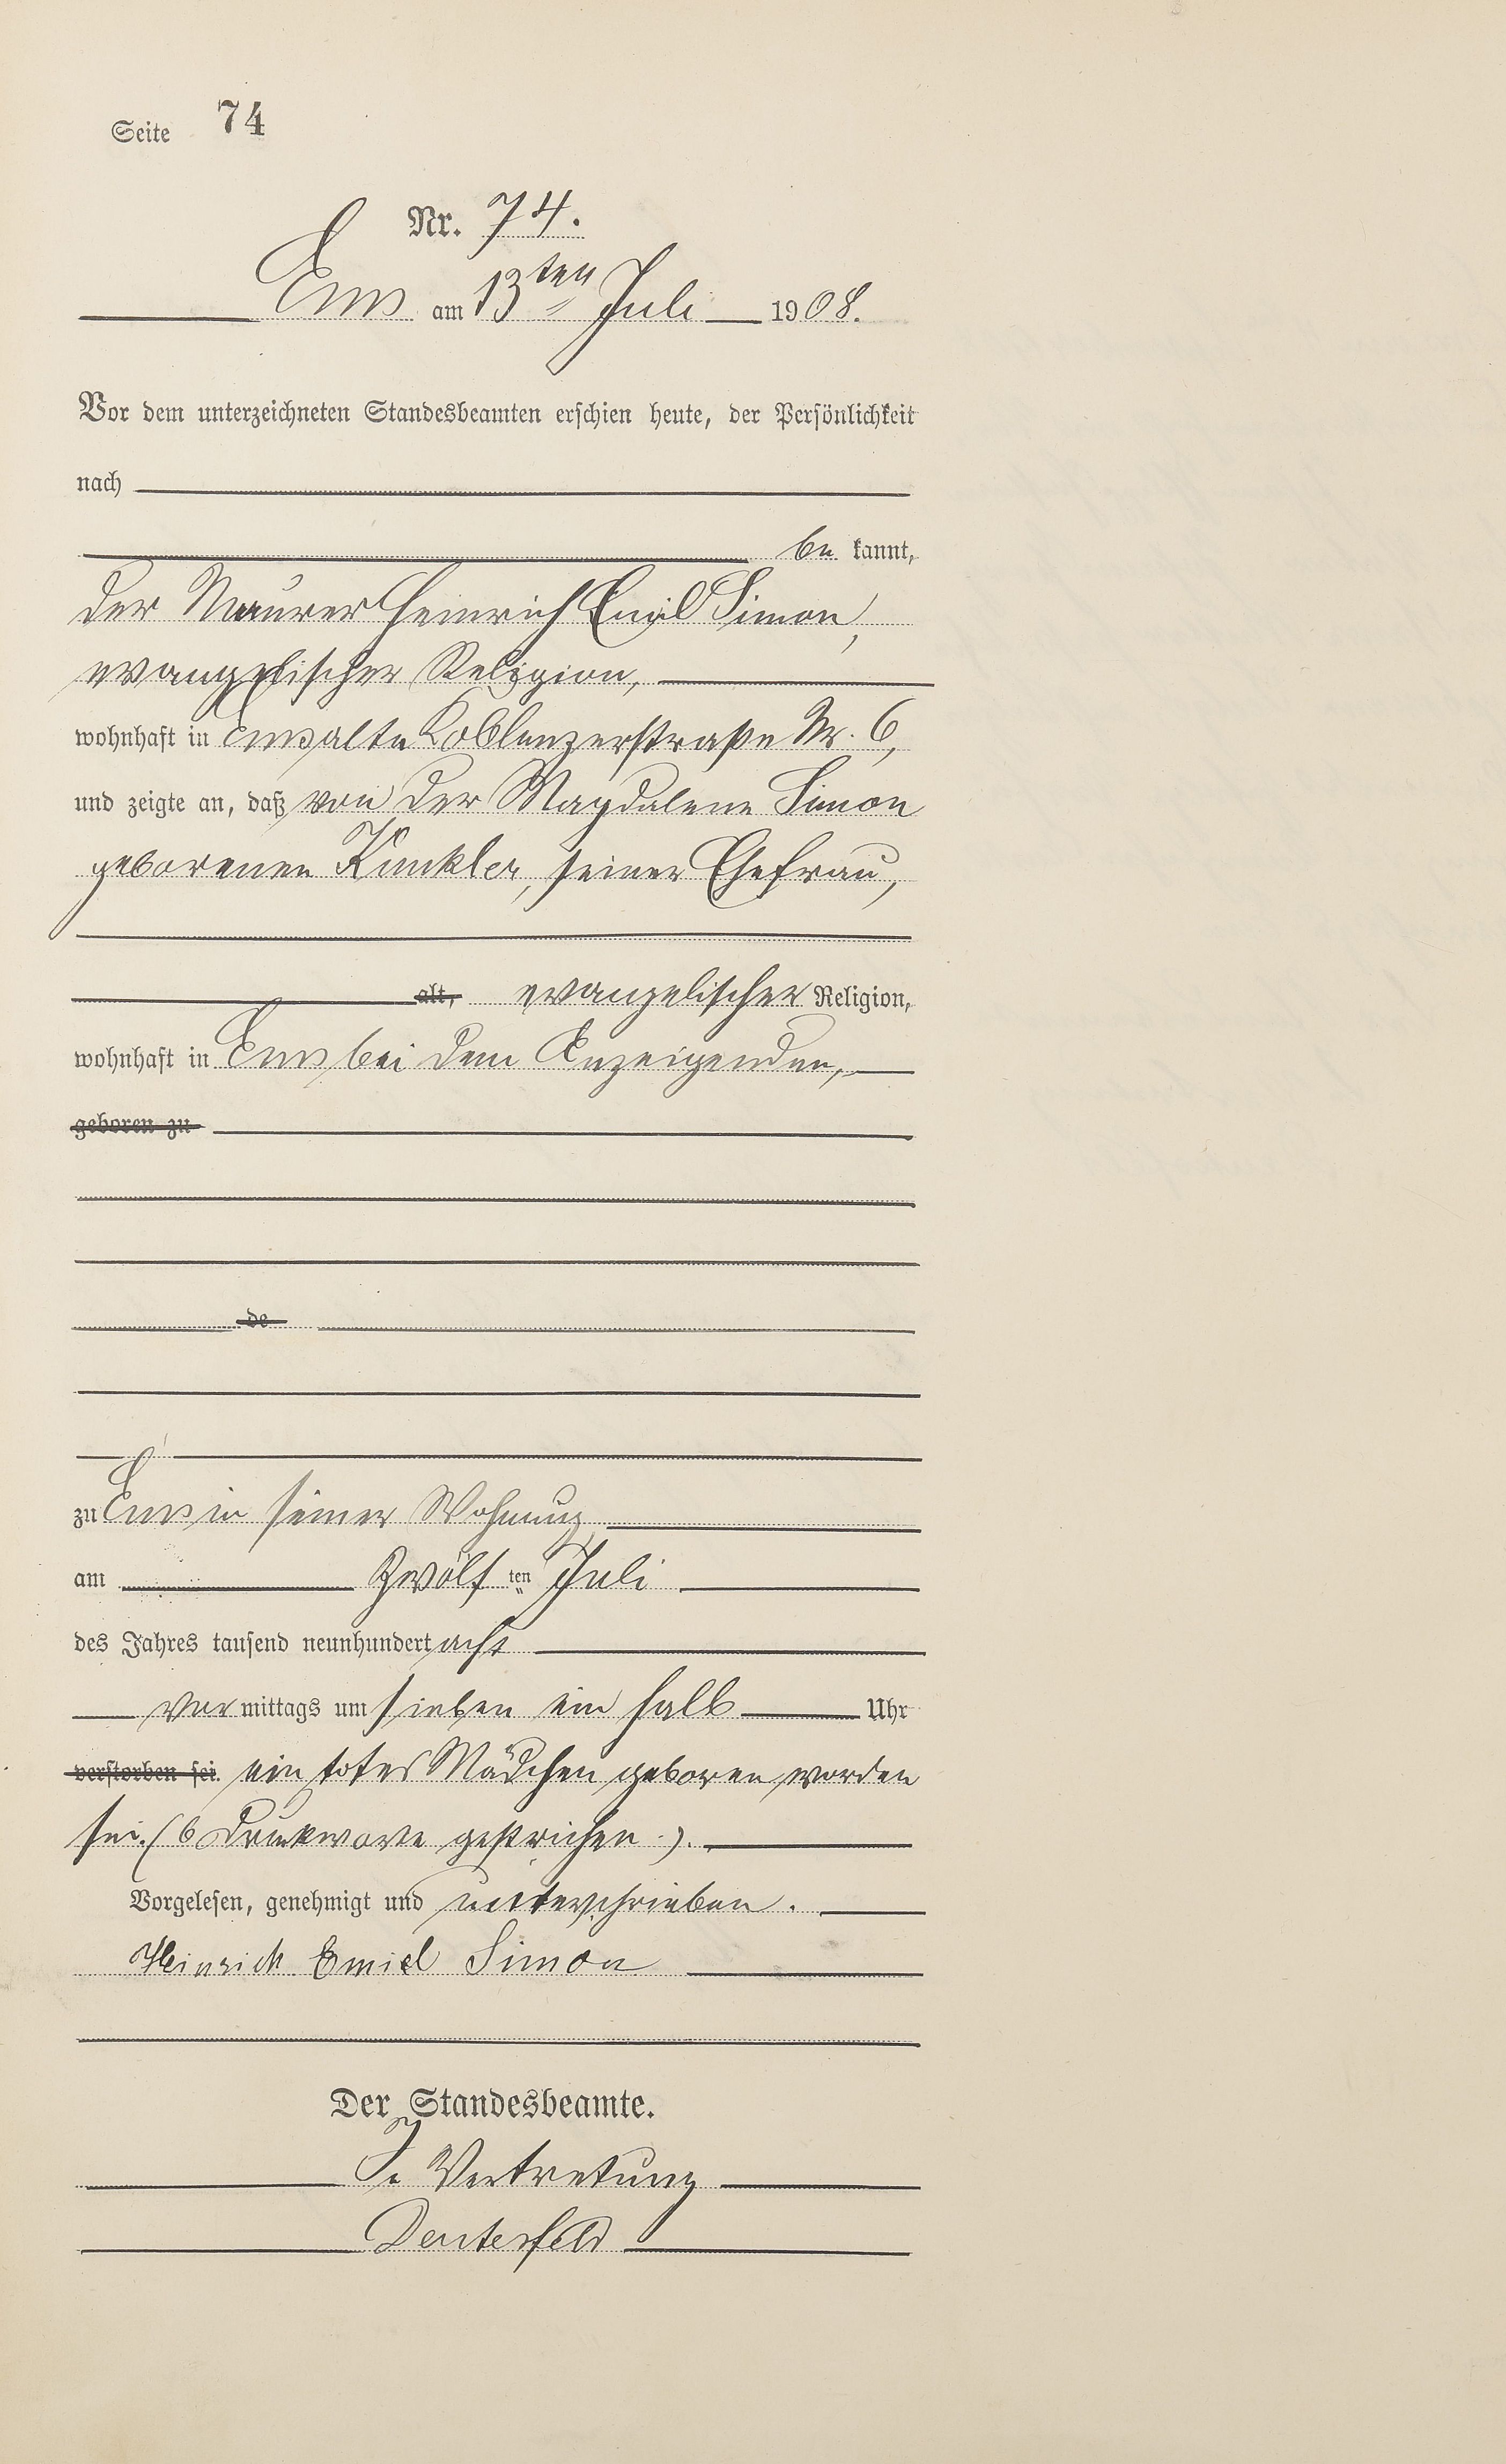 Seite 74
Nr. 74.
Ems am 13ten Juli 1908.
Vor dem unterzeichneten Standesbeamten erschien heute, der Persönlichkeit
nach
be kannt,
der Maurer Heinrich Emil Simon,
evangelischer Religion,
wohnhaft in Ems, alte Koblenzerstraße Nr. 6,
und zeigte an, daß von der Magdalene Simon
geborenen Kunkler, seiner Ehefrau,
alt, evangelischer Religion,
wohnhaft in Ems bei dem Anzeigenden,
geboren zu
de
zu Ems in seiner Wohnung
am Zwölf ten Juli
des Jahres tausend neunhundert acht
Vor mittags um sieben ein halb Uhr
verstorben sei. ein totes Mädchen geboren worden
sei. (6 Druckworte gestrichen.).
Vorgelesen, genehmigt und unterschrieben.
Heinrich Emiel Simon
Der Standesbeamte.
In Vertretung